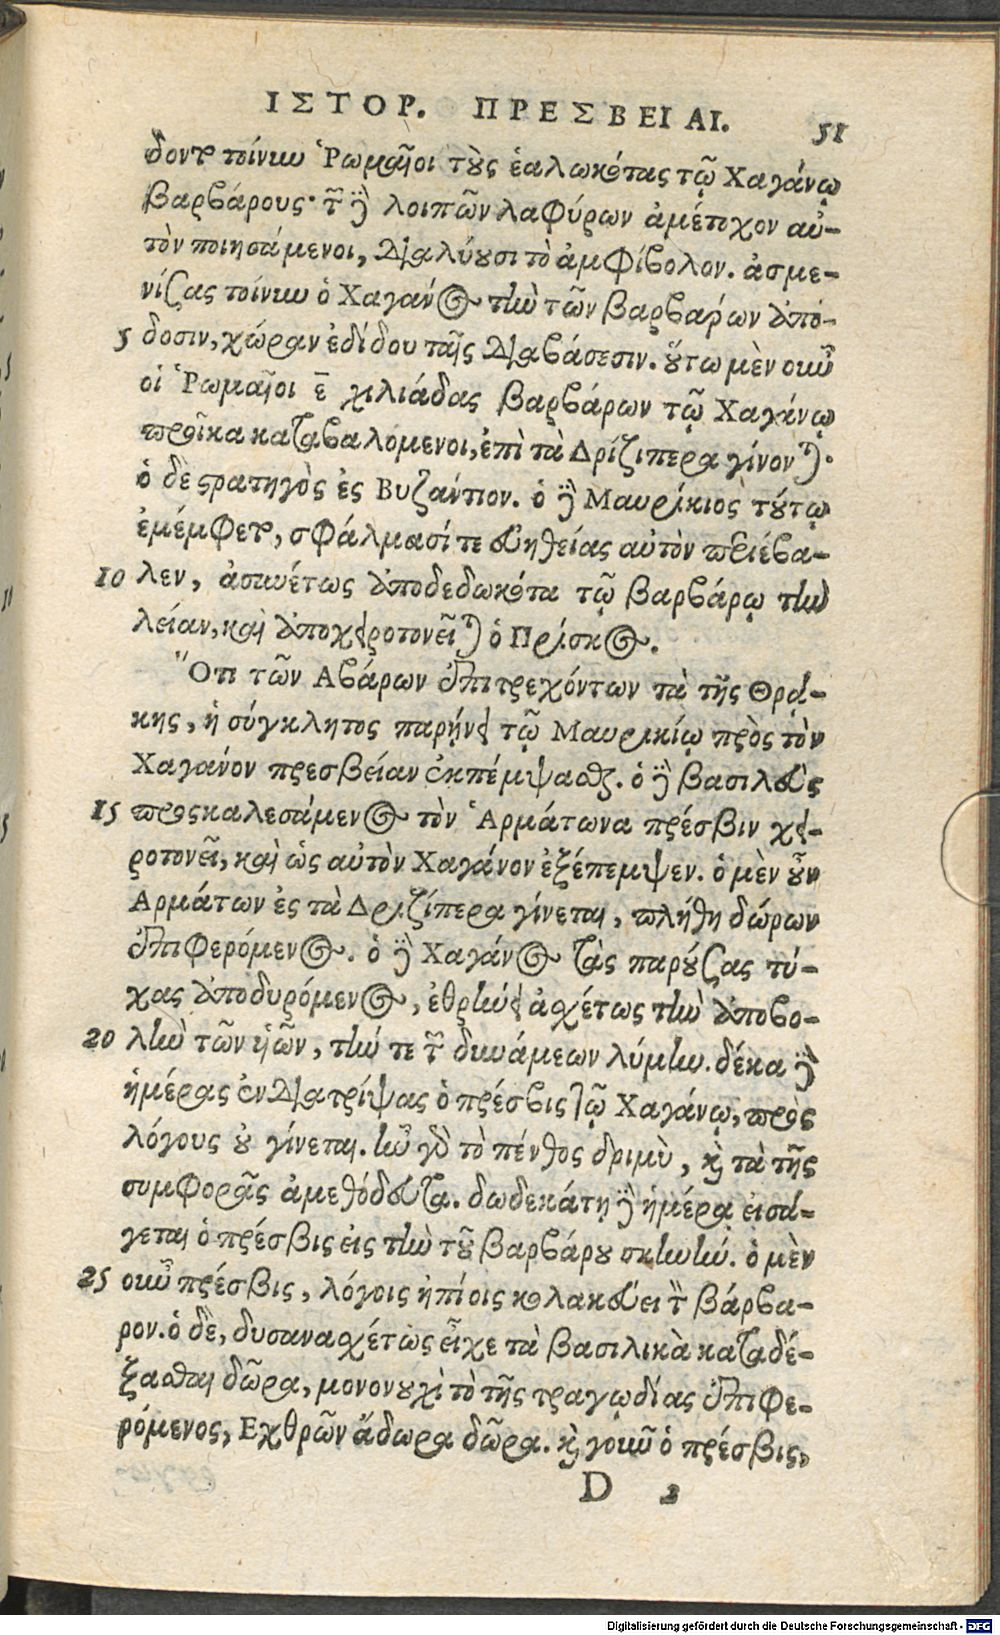 ΙΣΤΟΡ. ΠΡΕΣΒΕΙΑΙ. 51
δονται τοίνυν Ῥωμαῖοι τοὺς ἑαλωκότας τῷ Χαγάνῳ
βαρβάρους· τῶν δὲ λοιπῶν λαφύρων ἀμέτοχον αὐ-
τὸν ποιησάμενοι, διαλύουσι τὸ ἀμφίβολον. ἀσμε-
νίσας τοίνυν ὁ Χαγάνος τὴν τῶν βαρβάρων ἀπό-
5 δοσιν, χώραν ἐδίδου ταῖς διαβάσεσιν. οὕτω μὲν οὖν
οἱ Ῥωμαῖοι ε̄ χιλιάδας βαρβάρων τῷ Χαγάνῳ
προῖκα καταβαλόμενοι, ἐπὶ τὰ Δρίζιπερα γίνονται·
ὁ δὲ στρατηγὸς ἐς Βυζάντιον. ὁ δὲ Μαυρίκιος τούτῳ
ἐμέμφετο, σφάλμασί τε εὐηθείας αὐτὸν περιέβα-
10 λεν, ἀσυνέτως ἀποδεδωκότα τῷ βαρβάρῳ τὴν
λείαν, καὶ ἀποχειροτονεῖται ὁ Πρίσκος.
Ὅτι τῶν Αβάρων ἐπιτρεχόντων τὰ τῆς Θρᾴ-
κης, ἡ σύγκλητος παρῄνει τῷ Μαυρικίῳ πρὸς τὸν
Χαγάνον πρεσβείαν ἐκπέμψασθαι. ὁ δὲ βασιλεὺς
15 προσκαλεσάμενος τὸν Ἁρμάτωνα πρέσβιν χει-
ροτονεῖ, καὶ ὡς αὐτὸν Χαγάνον ἐξέπεμψεν. ὁ μὲν οὖν
Αρμάτων ἐς τὰ Δριζίπερα γίνεται, πλήθη δώρων
ἐπιφερόμενος. ὁ δὲ Χαγάνος τὰς παρούσας τύ-
χας ἀποδυρόμενος, ἐθρήνει ἀσχέτως τὴν ἀποβο-
20 λὴν τῶν υἱῶν, τήν τε τῶν δυνάμεων λύμην. δέκα δὲ
ἡμέρας ἐνδιατρίψας ὁ πρέσβις τῷ Χαγάνῳ, πρὸς
λόγους οὐ γίνεται. ἦν γὰρ τὸ πένθος δριμὺ, καὶ τὰ τῆς
συμφορᾶς ἀμεθόδευτα. δωδεκάτῃ δὲ ἡμέρᾳ εἰσά-
γεται ὁ πρέσβις εἰς τὴν τοῦ βαρβάρου σκηνήν. ὁ μὲν
25 οὖν πρέσβις, λόγοις ἠπίοις κολακεύει τὸν βάρβα-
ρον. ὁ δὲ, δυσανασχέτως εἶχε τὰ βασιλικὰ καταδέ-
ξασθαι δῶρα, μονονουχὶ τὸ τῆς τραγῳδίας ἐπιφε-
ρόμενος, Εχθρῶν ἄδωρα δῶρα. καὶ γοῦν ὁ πρέσβις,
D 2
Digitalisierung gefördert durch die Deutsche Forschungsgemeinschaft - DFG